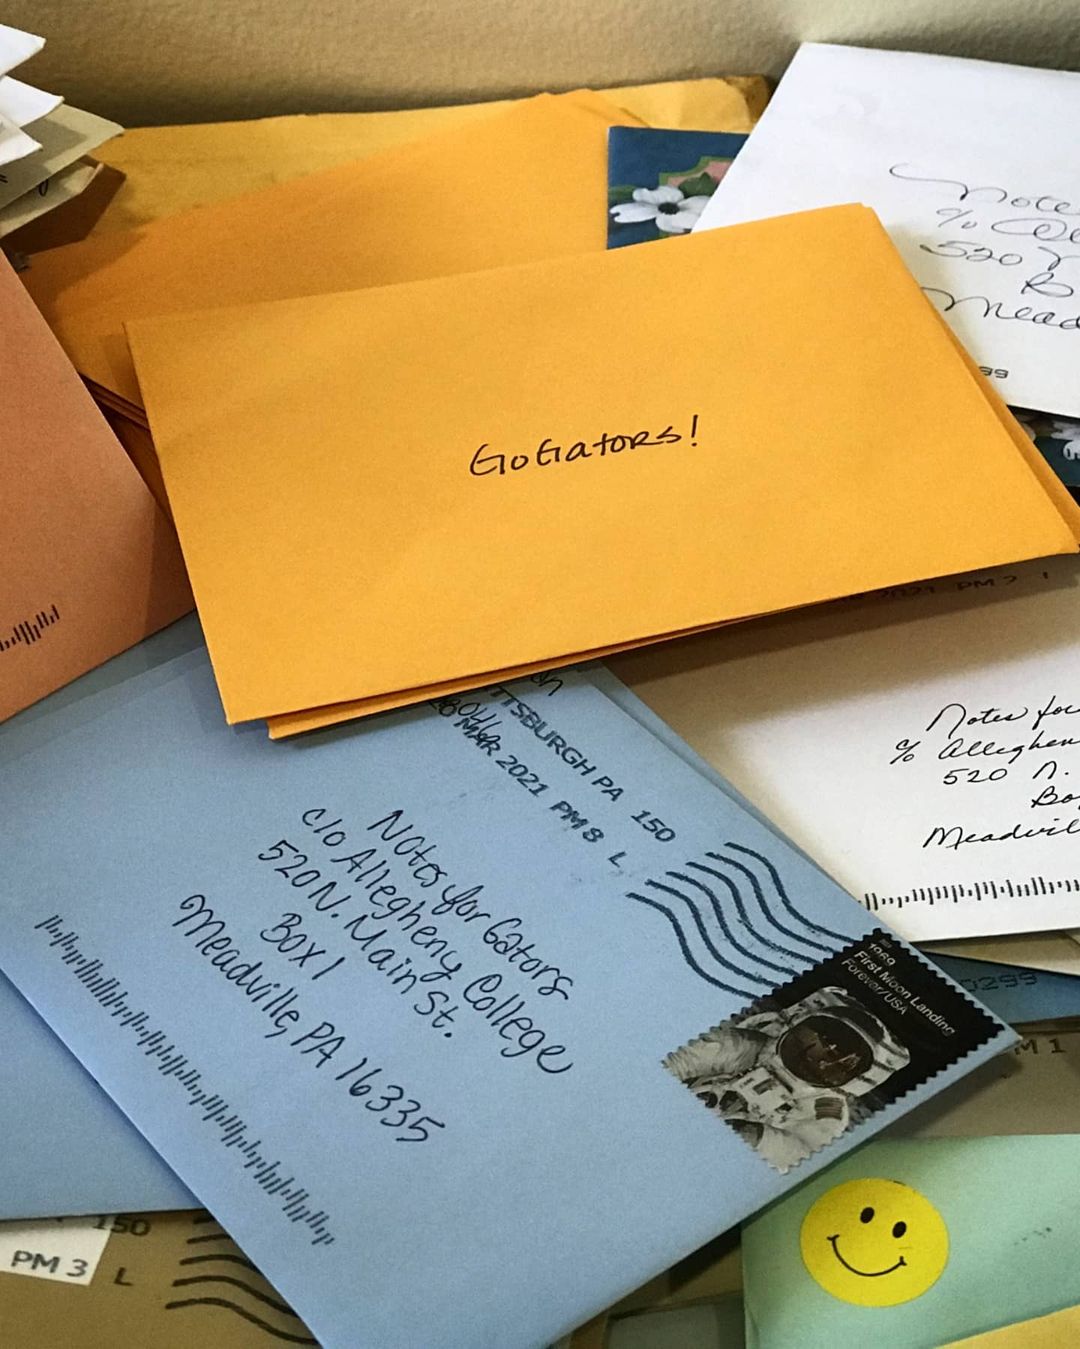 Notes
c/o
520 N
B
Mead
99
GoGators!
2021 PM 2 1
Notes for
c/o Alleghen
520 N.
Bo
Meadvil
PITTSBURGH PA 150
MAR 2021 PM 8 L
Notes for Gators
c/o Allegheny College
520 N. Main St.
Box 1
Meadville, PA 16335
1969
First Moon Landing
Forever/USA
0299
M 1
150
PM 3 L